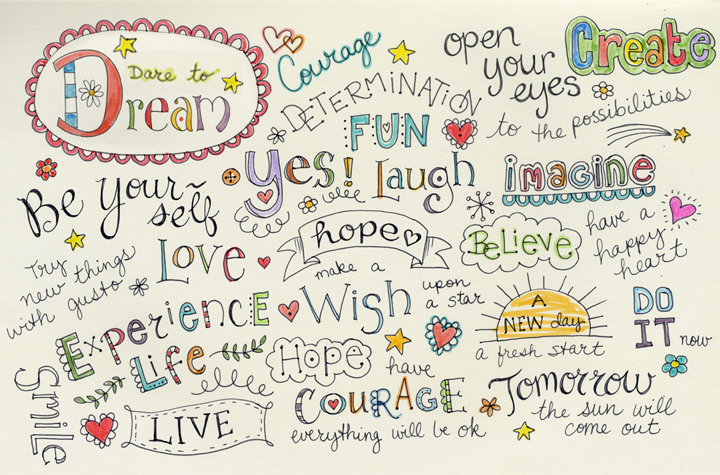 Dare to
Dream
Courage
DETERMINATION
FUN
open
your
eyes
to the possibilities
Create
Be Your~
self
yes!
Laugh
imagine
Try
new things
with gusto
Love
hope
BeLieve
have a
happy
heart
make a
Wish
upon
a star
A
NEW day
a fresh start
DO
IT now
Experience
Life
Hope
have
COURAGE
everything will be ok
Tomorrow
the sun will
come out
Smile
LIVE